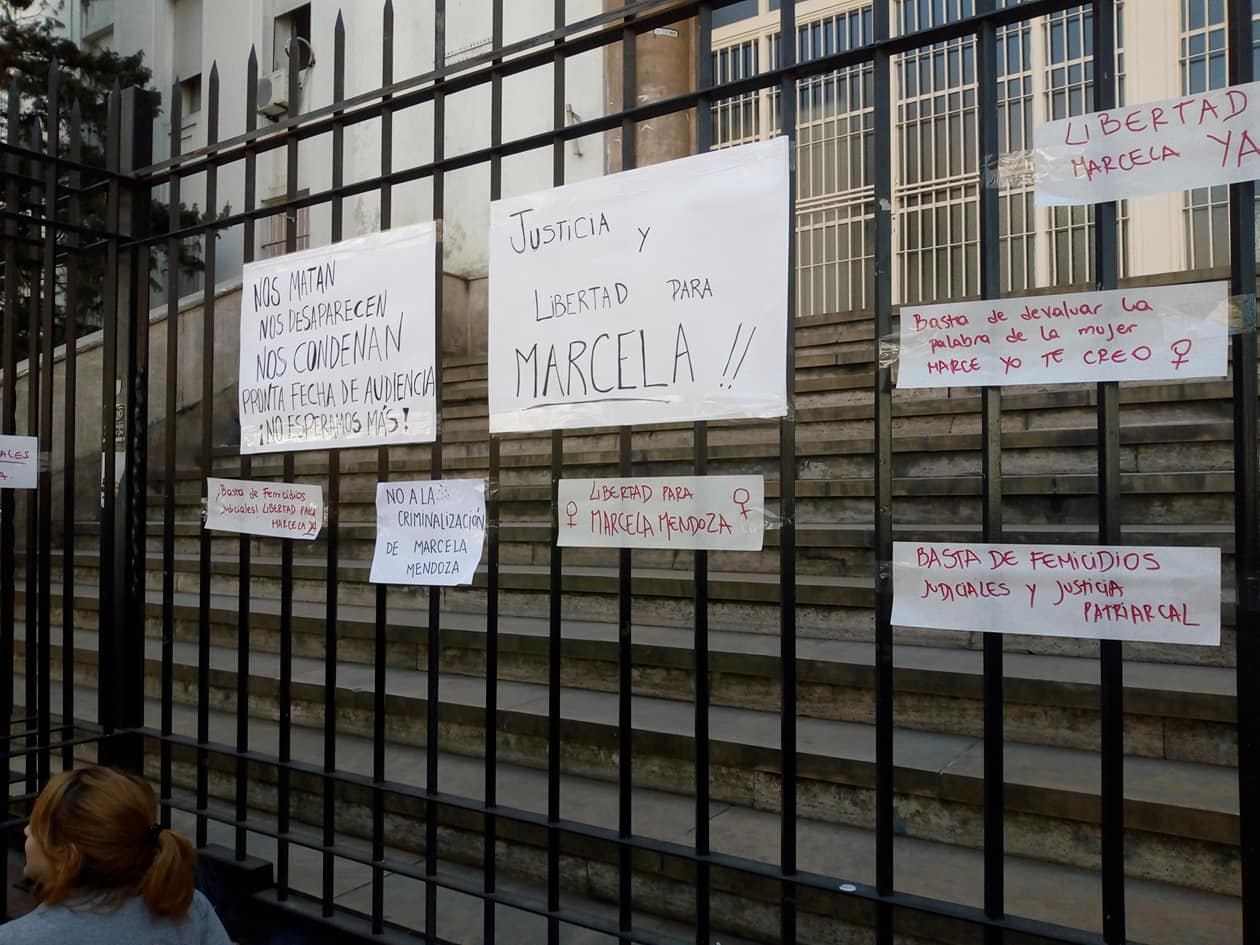 NOS MATAN
NOS DESAPARECEN
NOS CONDENAN
PRONTA FECHA DE AUDIENCIA
¡NO ESPERAMOS MÁS!
JUSTICIA Y
LIBERTAD PARA
MARCELA !!
LIBERTAD
MARCELA YA
Basta de devaluar la
palabra de la mujer
MARCE YO TE CREO ♀
¡Basta de Femicidios
Judiciales! LIBERTAD PARA
MARCELA
NO A LA
CRIMINALIZACIÓN
DE MARCELA
MENDOZA
♀ LIBERTAD PARA ♀
MARCELA MENDOZA
BASTA DE FEMICIDIOS
JUDICIALES Y JUSTICIA
PATRIARCAL